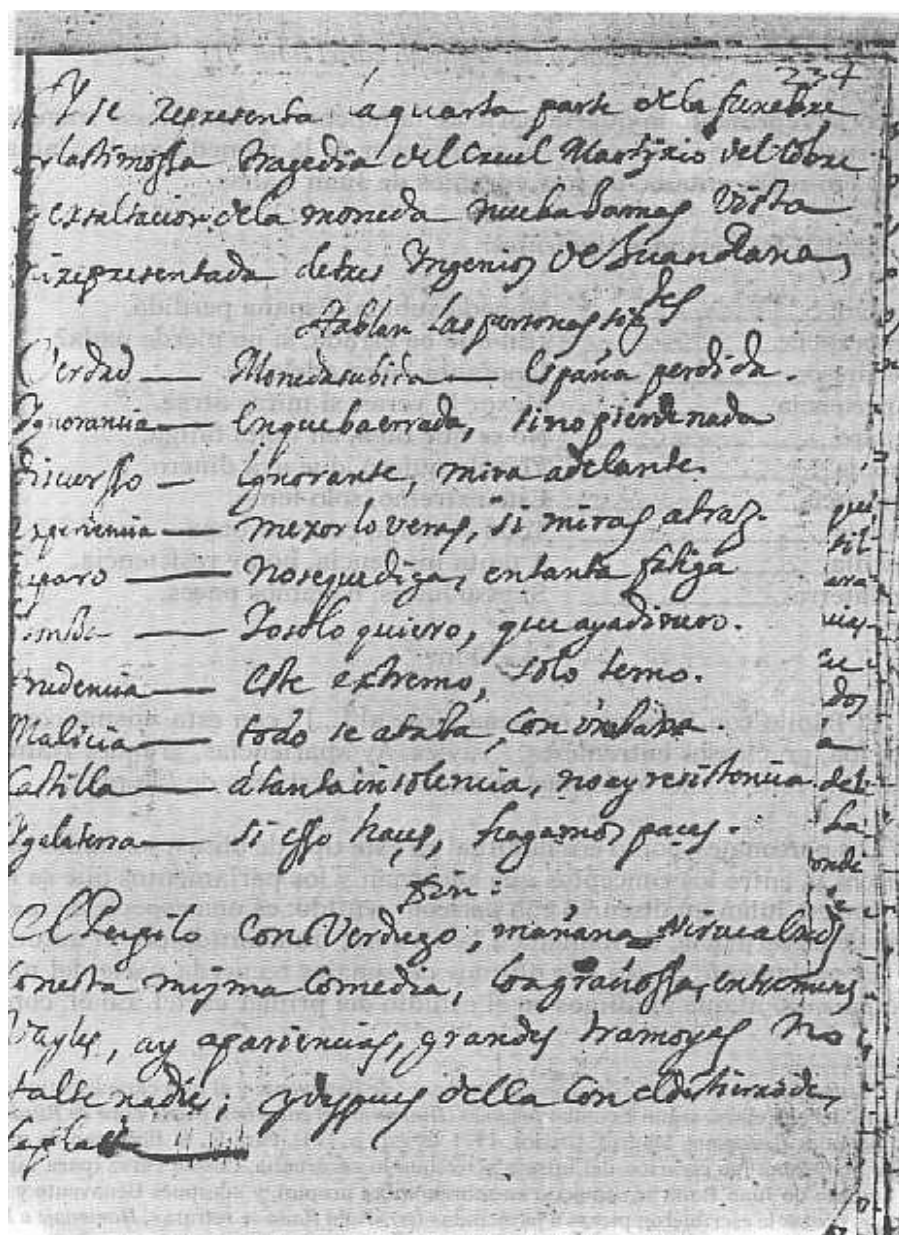 234
Y se representa la quarta parte de la funebre
y lastimossa tragedia del cruel Martyrio del Cobre
y exsaltacion de la moneda nueba Jamas Vista
ni representada de tres Yngenios de Juan Rana
Hablan Las personas sigtes
Verdad — Moneda subida — España perdida.
Ygnorancia — En que ba errada, si no pierde nada
Discursso — ignorante, mira adelante.
Experiencia — mexor lo veras, si miras atraz.
Reparo — No se que diga, en tanta fatiga
— Yo solo quiero, que aya dinero.
Prudencia — Este extremo, solo temo.
Malicia — todo se acaba, con
Castilla — á tanta insolencia, no ay resistencia
Ygalaterra — Si esso haces, hagamos paces.
Fin:
El Pepito Con Verdugo, mañana
Con esta misma Comedia, Con graciossos, entremeses
Vayles, ay apariencias, grandes tramoyas No
falte nadie; y despues della Con el destierro de
la plata